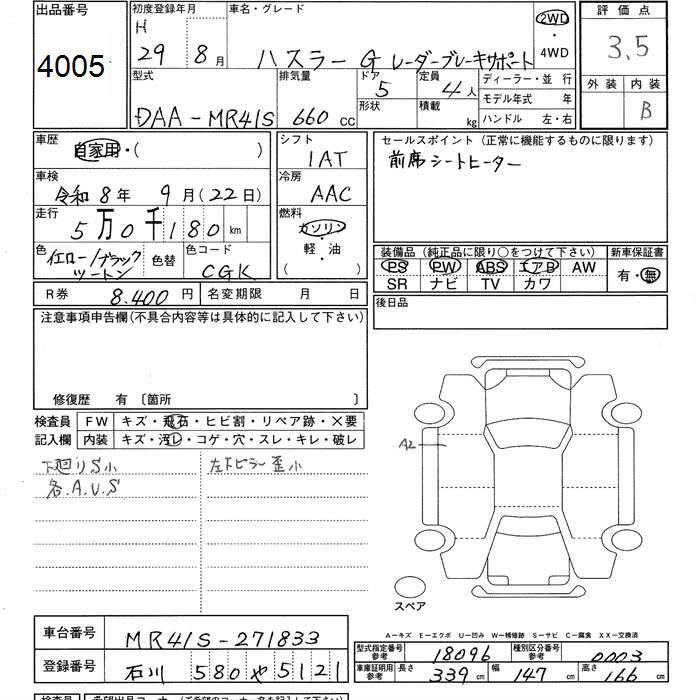 出品番号
4005
初度登録年月
H
29年 8月
車名・グレード
ハスラー G レーダーブレーキサポート
2WD
・
4WD
評価点
3.5
外装 内装
B
型式
DAA-MR41S
排気量
660 cc
ドア
5
形状
定員
4人
積載
kg
ディーラー・並行
モデル年式 年
ハンドル 左・右
車歴
自家用・( )
車検
令和8年 9月(22日)
走行
5万0千180km
色
イエロー/ブラック
ツートン
色替
色コード
CGK
シフト
1AT
冷房
AAC
燃料
ガソリン
軽・油
( )
セールスポイント (正常に機能するものに限ります)
前席シートヒーター
装備品 (純正品に限り○をつけて下さい)
PS PW ABS エアB AW
SR ナビ TV カワ
新車保証書
有・無
R券 8.400円
名変期限 月 日
後日品
注意事項申告欄(不具合内容等は具体的に記入して下さい)
修復歴 有〔箇所 〕
検査員
記入欄
FW キズ・飛石・ヒビ割・リペア跡・×要
内装 キズ・汚レ・コゲ・穴・スレ・キレ・破レ
下廻りS小
各.A.U.S
左下ピラー歪小
A2
スペア
A−キズ E−エクボ U−凹み W−補修跡 S−サビ C−腐食 XX−交換済
車台番号 MR41S-271833
登録番号 石川 580 や 5121
型式指定番号
参考
18096
種別区分番号
参考
0003
車庫証明用
参考
長さ 339cm
幅 147cm
高さ 166cm
検査員
希望出品コーナー